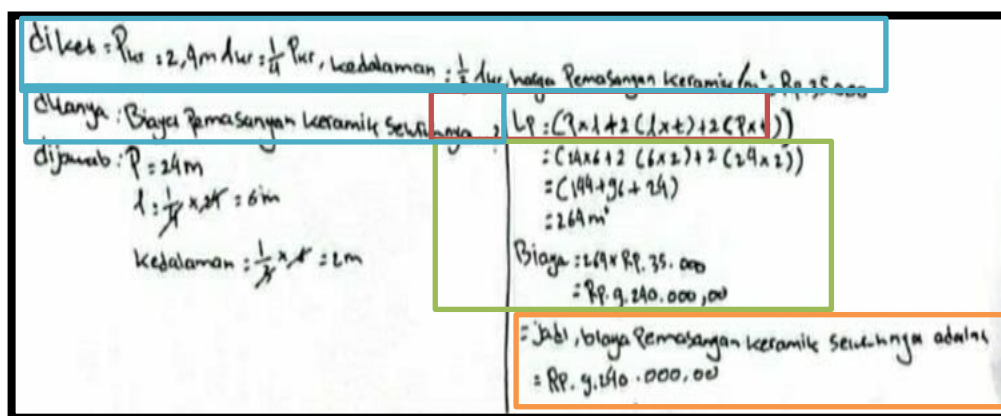 diket : Pkr : 2,4m lkr : 1/4 Pkr, kedalaman : 1/3 lkr, harga Pemasangan keramik /m² = Rp. 35.000
ditanya : Biaya Pemasangan keramik seluruhnya ?
dijawab : P = 24m
l : 1/4 × 24 = 6m
kedalaman : 1/3 × 6 = 2m
LP : (P×l+2(l×t)+2(P×t))
=(24×6+2(6×2)+2(24×2))
=(144+96+24)
=264m²
Biaya : 264×Rp. 35.000
= Rp. 9.240.000,00
= jadi, biaya Pemasangan keramik seluruhnya adalah
= Rp. 9.240.000,00